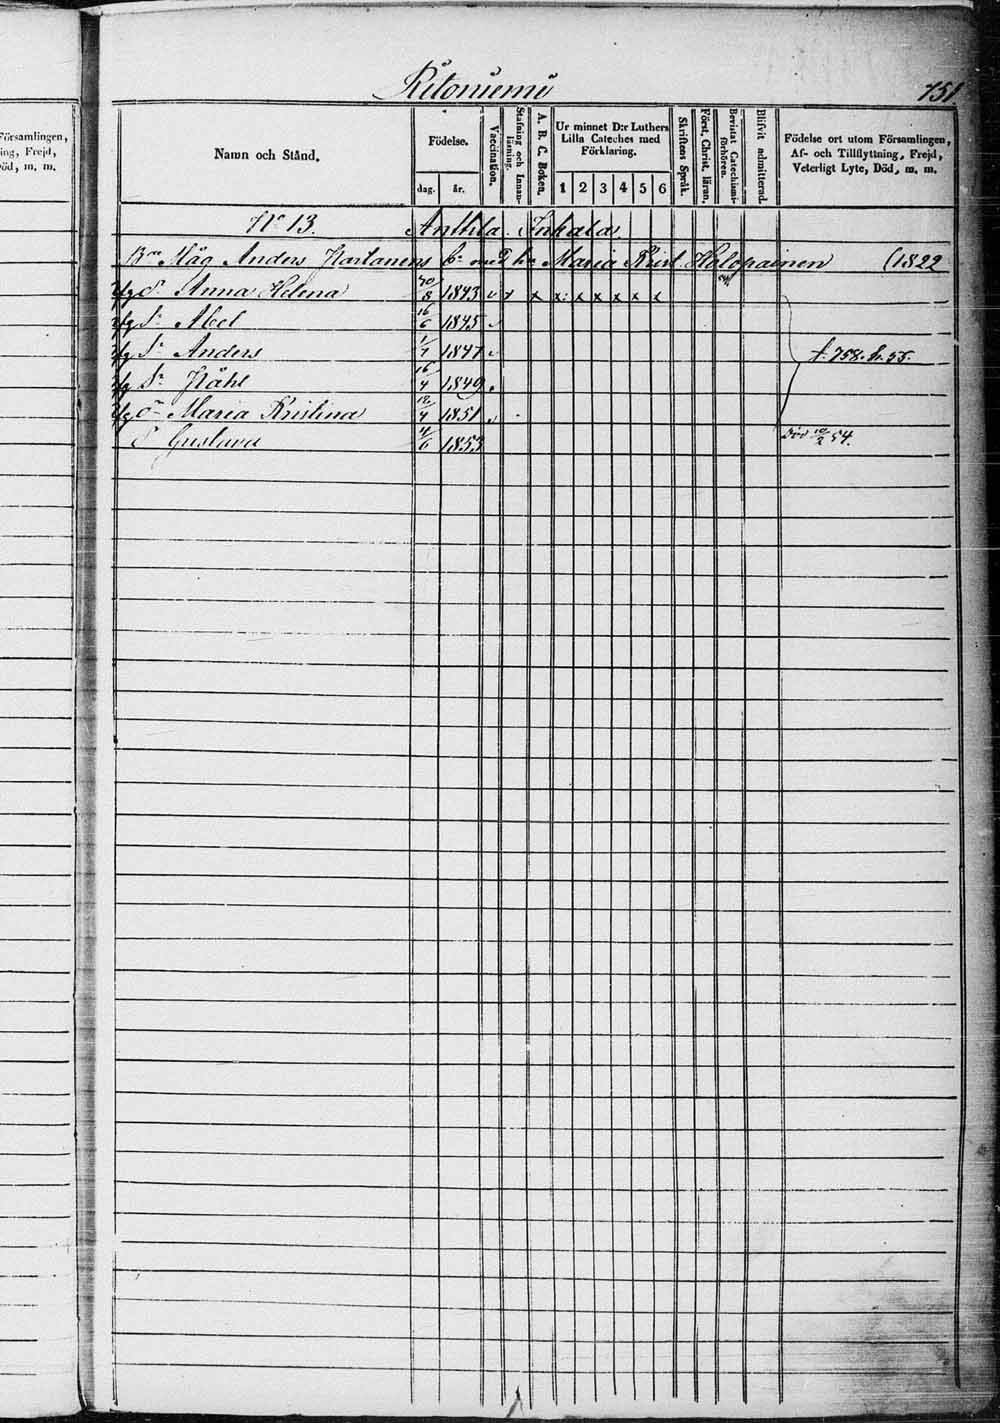 Ritoniemi 751
Församlingen,
ing, Frejd,
öd, m. m.
Namn och Stånd.
Födelse.
dag. år.
Vaccination.
Stafning och Innanläsning.
A. B. C. Boken.
Ur minnet D:r Luthers Lilla Cateches med Förklaring.
1 2 3 4 5 6
Skriftens Språk.
Först. Christ. läran.
Bevistat Catechismi-förhören.
Blifvit admitterad.
Födelse ort utom Församlingen, Af- och Tillflyttning, Frejd, Veterligt Lyte, Död, m. m.
No 13. Anthla Inkala
Måg Anders Kartanens Maria Krist Holopainen (1822
Anna Helena 8 1843 x x x x x x x
Abel 16/6 1845
Anders 1847
Påhl 16/4 1849
Maria Kristina 12/4 1851
Gustava 4/6 1853
f. 758. h. 55
död 10/2 54.